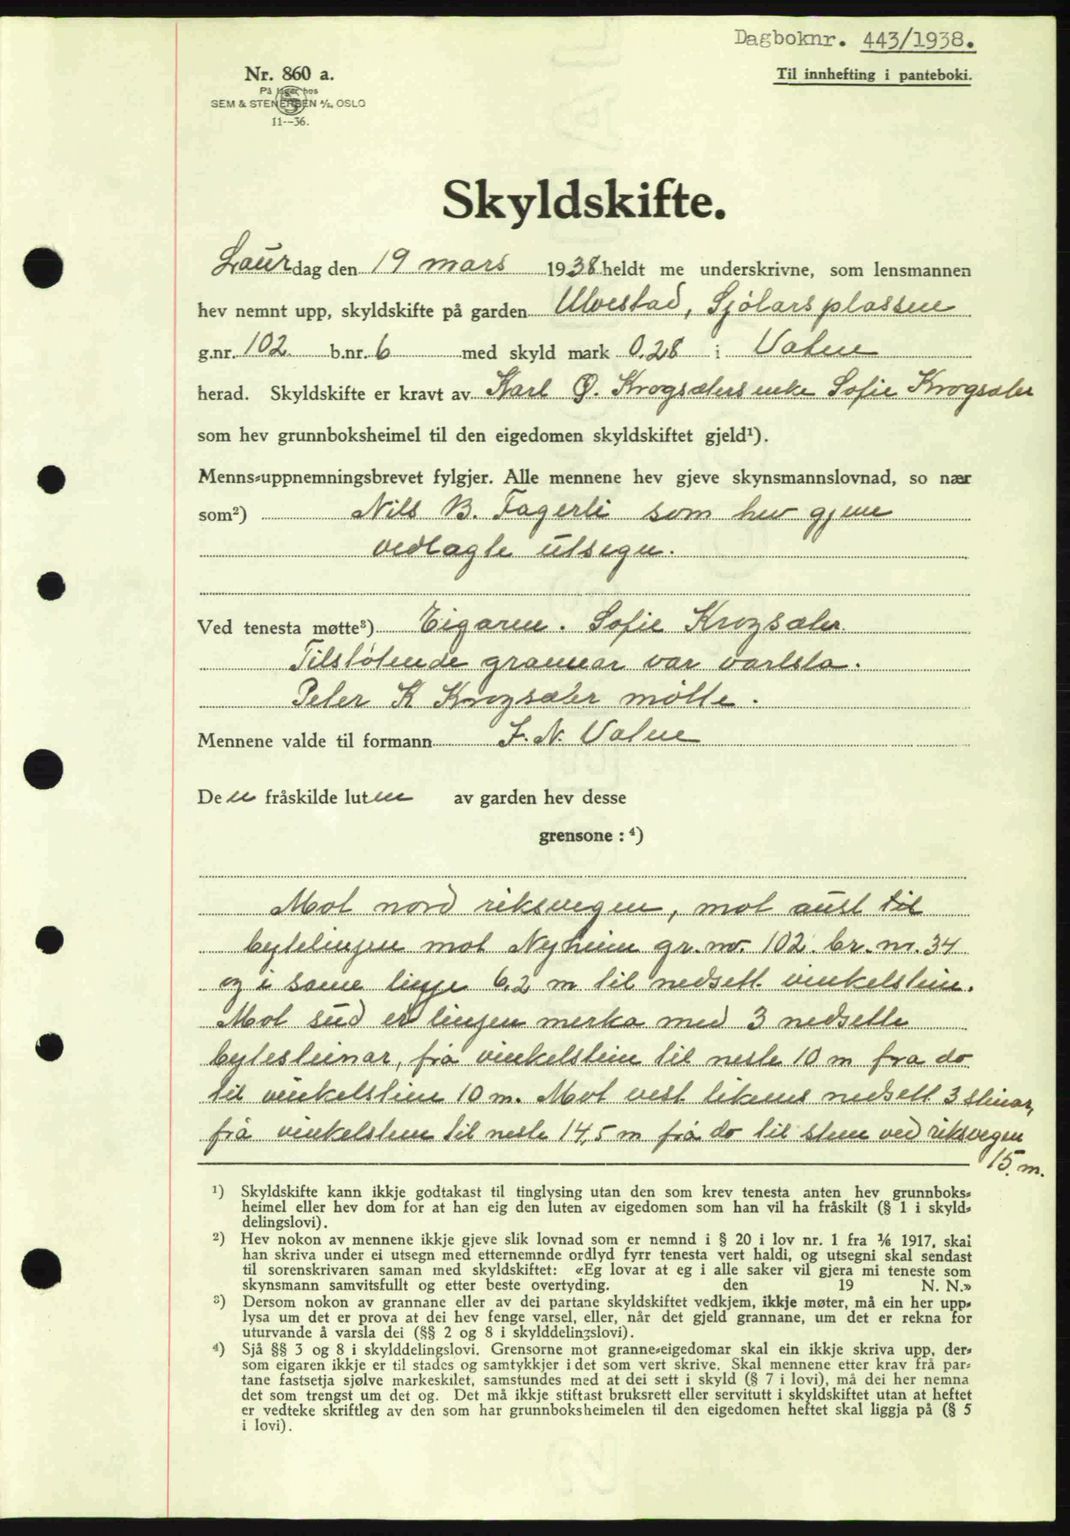 Dagboknr. 443/1938.
Til innhefting i panteboki.
Nr. 860 a.
På lager hos
SEM & STENERSEN A/S, OSLO
11--36.
Skyldskifte.
Laurdag den 19 mars 1938 heldt me underskrivne, som lensmannen
hev nemnt upp, skyldskifte på garden Ulvestad, Sjölarsplassen
g.nr. 102 b.nr. 6 med skyld mark 0.28 i Vatne
herad. Skyldskifte er kravt av Karl O. Krogsæters enke Sofie Krogsæter
som hev grunnboksheimel til den eigedomen skyldskiftet gjeld¹).
Menns-uppnemningsbrevet fylgjer. Alle mennene hev gjeve skynsmannslovnad, so nær
som²) Nils B. Fagerli som hev gjeve
vedlagte utsegn.
Ved tenesta møtte³) Eigaren. Sofie Krogsæter.
Tilstøtende grannar var varsla.
Peter K Krogsæter møtte.
Mennene valde til formann J. N. Vatne
Den fråskilde luten av garden hev desse
grensone : ⁴)
Mot nord riksvegen, mot aust til
bytelinjen mot Nyheim gr. nr. 102 br. nr. 34
og i same linje 6,2 m til nedsett vinkelstein.
Mot sud er linjen merka med 3 nedsette
bytesteinar, frå vinkelstein til neste 10 m fra do
til vinkelstein 10 m. Mot vest likens nedsett 3 steinar,
frå vinkelstein til neste 14,5 m frå do til stein ved riksvegen
15. m.
¹) Skyldskifte kann ikkje godtakast til tinglysing utan den som krev tenesta anten hev grunnboks-
heimel eller hev dom for at han eig den luten av eigedomen som han vil ha fråskilt (§ 1 i skyld-
delingslovi).
²) Hev nokon av mennene ikkje gjeve slik lovnad som er nemnd i § 20 i lov nr. 1 fra 1/6 1917, skal
han skriva under ei utsegn med etternemnde ordlyd fyrr tenesta vert haldi, og utsegni skal sendast
til sorenskrivaren saman med skyldskiftet: «Eg lovar at eg i alle saker vil gjera mi teneste som
skynsmann samvitsfullt og etter beste overtyding. den 19 N. N.»
³) Dersom nokon av grannane eller av dei partane skyldskiftet vedkjem, ikkje møter, må ein her upp-
lysa um det er prova at dei hev fenge varsel, eller, når det gjeld grannane, um det er rekna for
uturvande å varsla dei (§§ 2 og 8 i skylddelingslovi).
⁴) Sjå §§ 3 og 8 i skylddelingslovi. Grensorne mot granne-eigedomar skal ein ikkje skriva upp, der-
som eigaren ikkje er til stades og samtykkjer i det som vert skrive. Skal mennene etter krav frå par-
tane fastsetja sjølve markeskilet, samstundes med at dei sett i skyld (§ 7 i lovi), må dei her nemna
det som trengst um det og. Det må ikkje stiftast bruksrett eller servitutt i skyldskiftet utan at heftet
er vedteke skriftleg av den som har grunnboksheimelen til den eigedomen heftet skal liggja på (§ 5
i lovi).